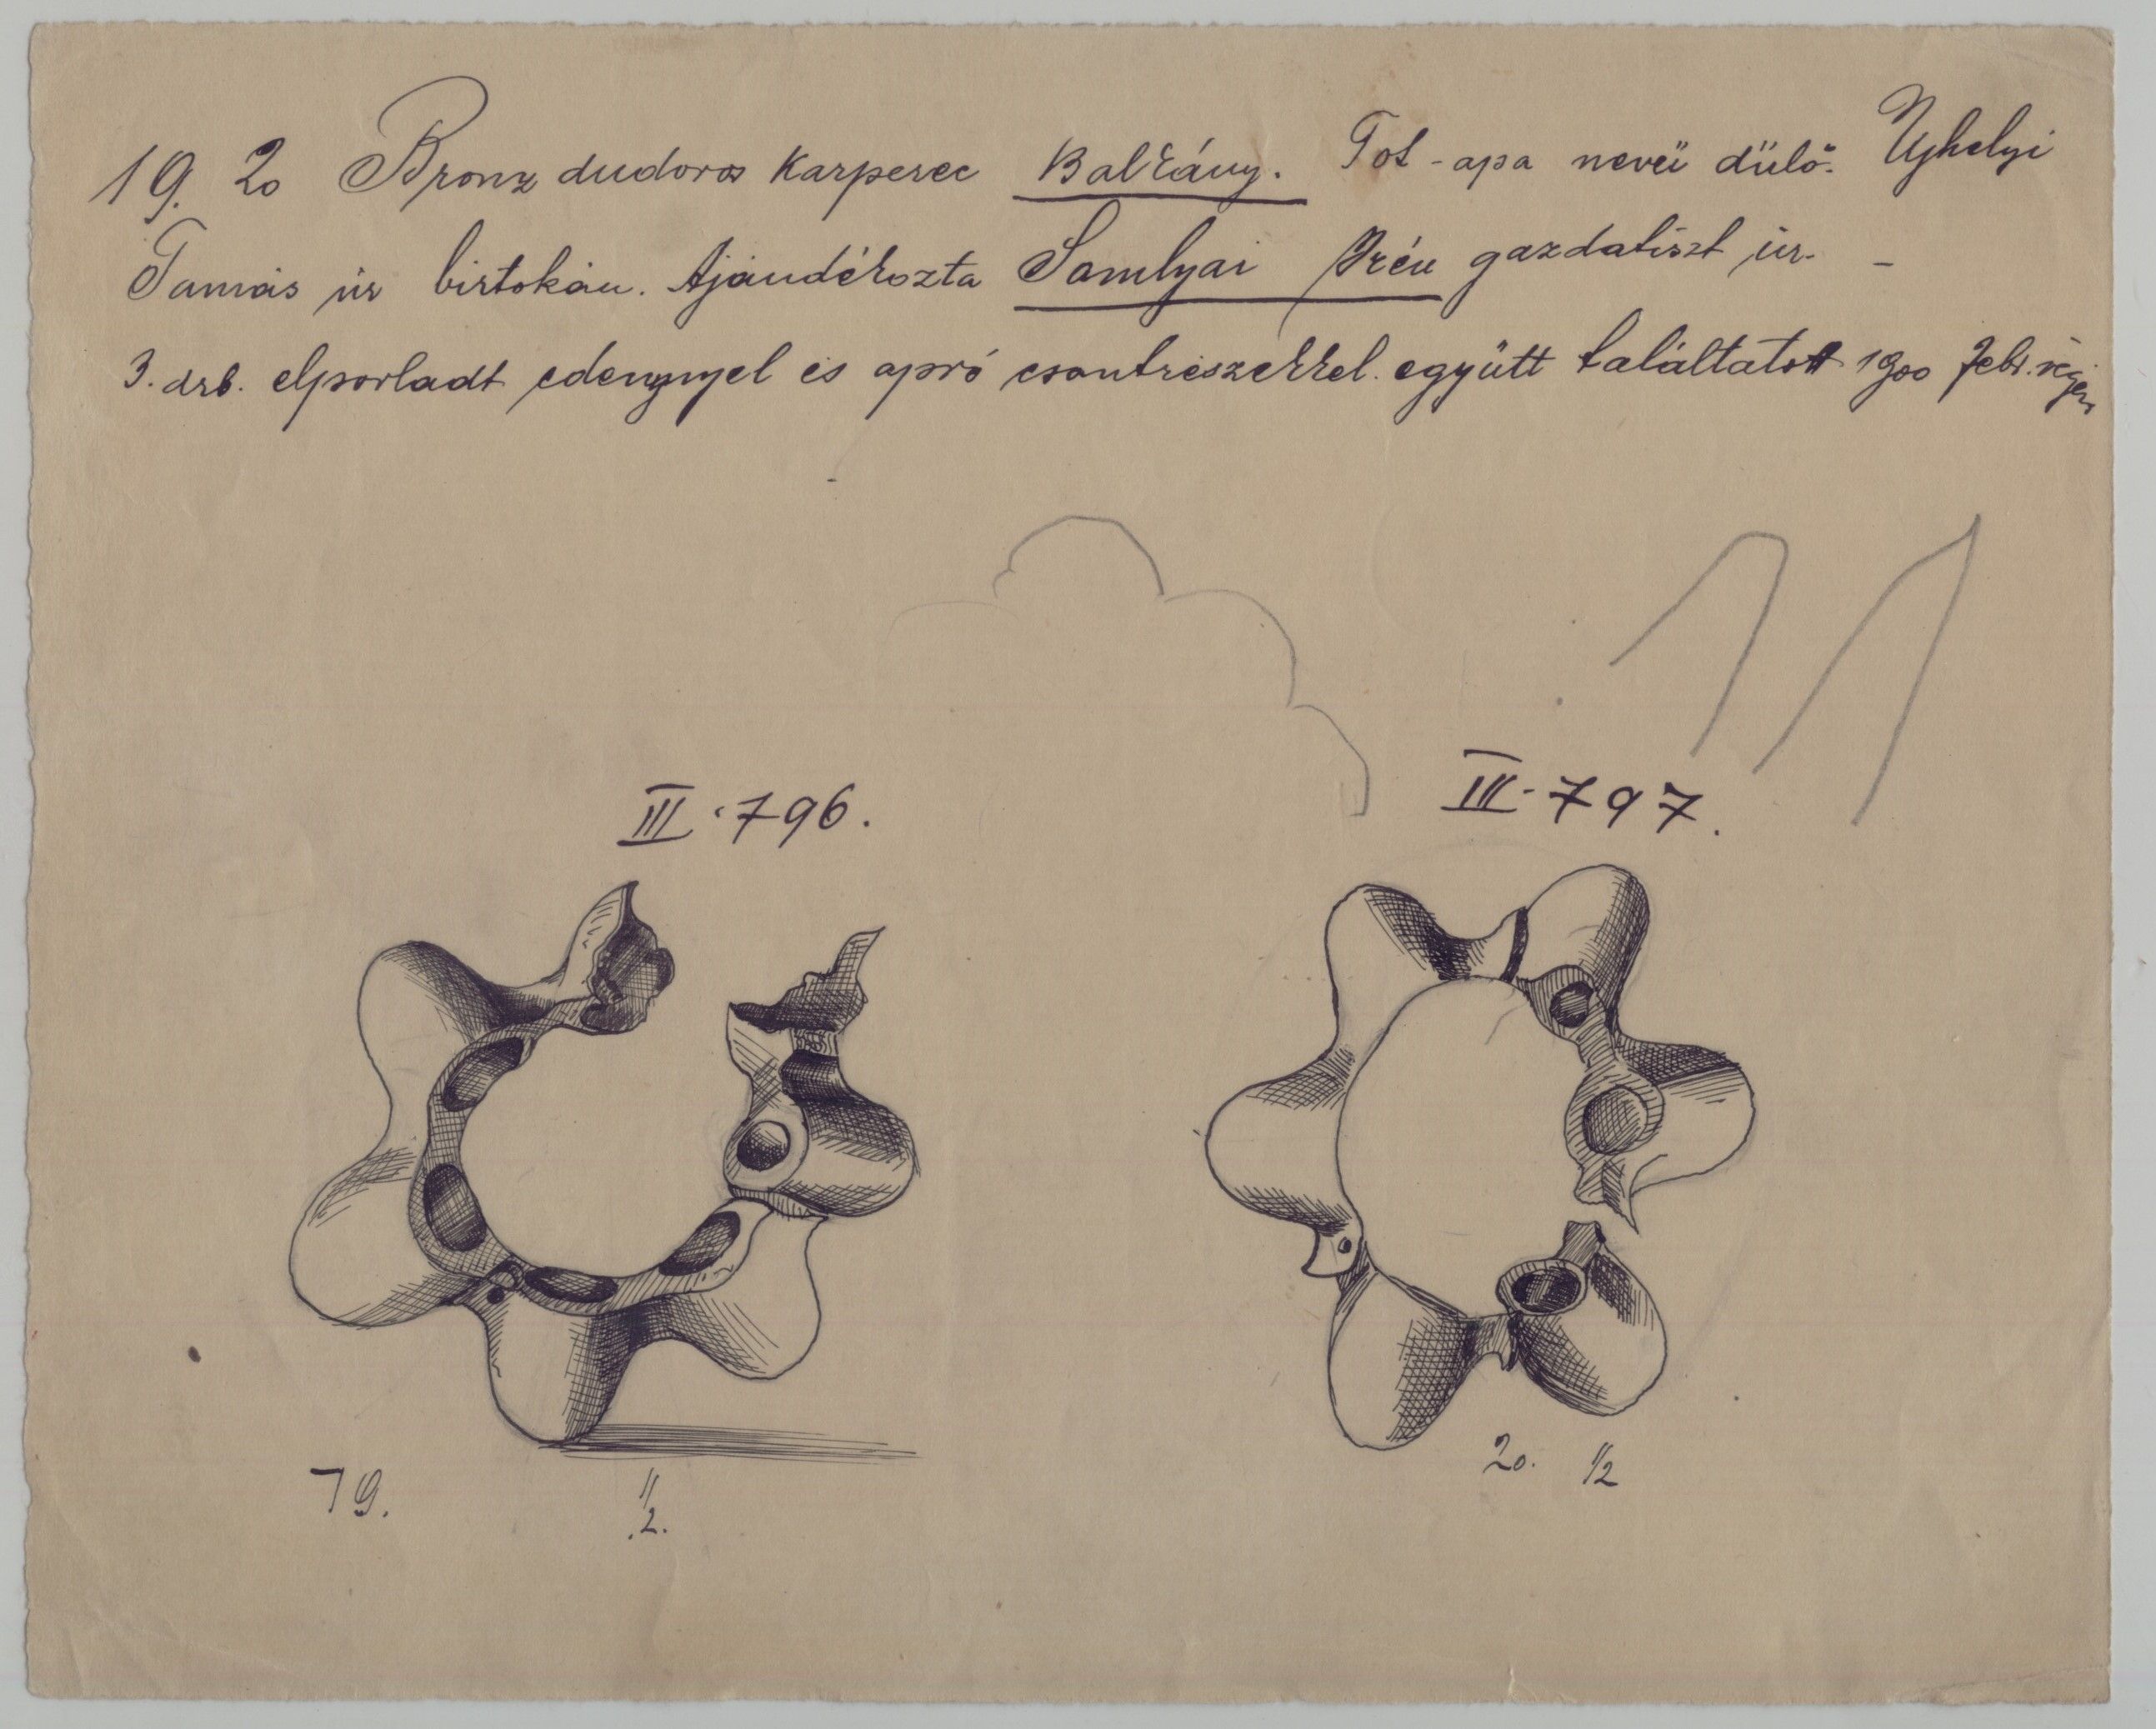 19. 20 Bronz dudoros Karperec Balkány. Tót-apa nevü dülö. Ujhelyi
Tamás úr birtokán. Ajándékozta Somlyai Irén gazdatiszt úr. -
3. drb. elporladt edénynyel és apró csontrészekkel együtt találtatott 1900 febr. végén
11
III. 796.
III. 797.
19.
1/2.
20. 1/2